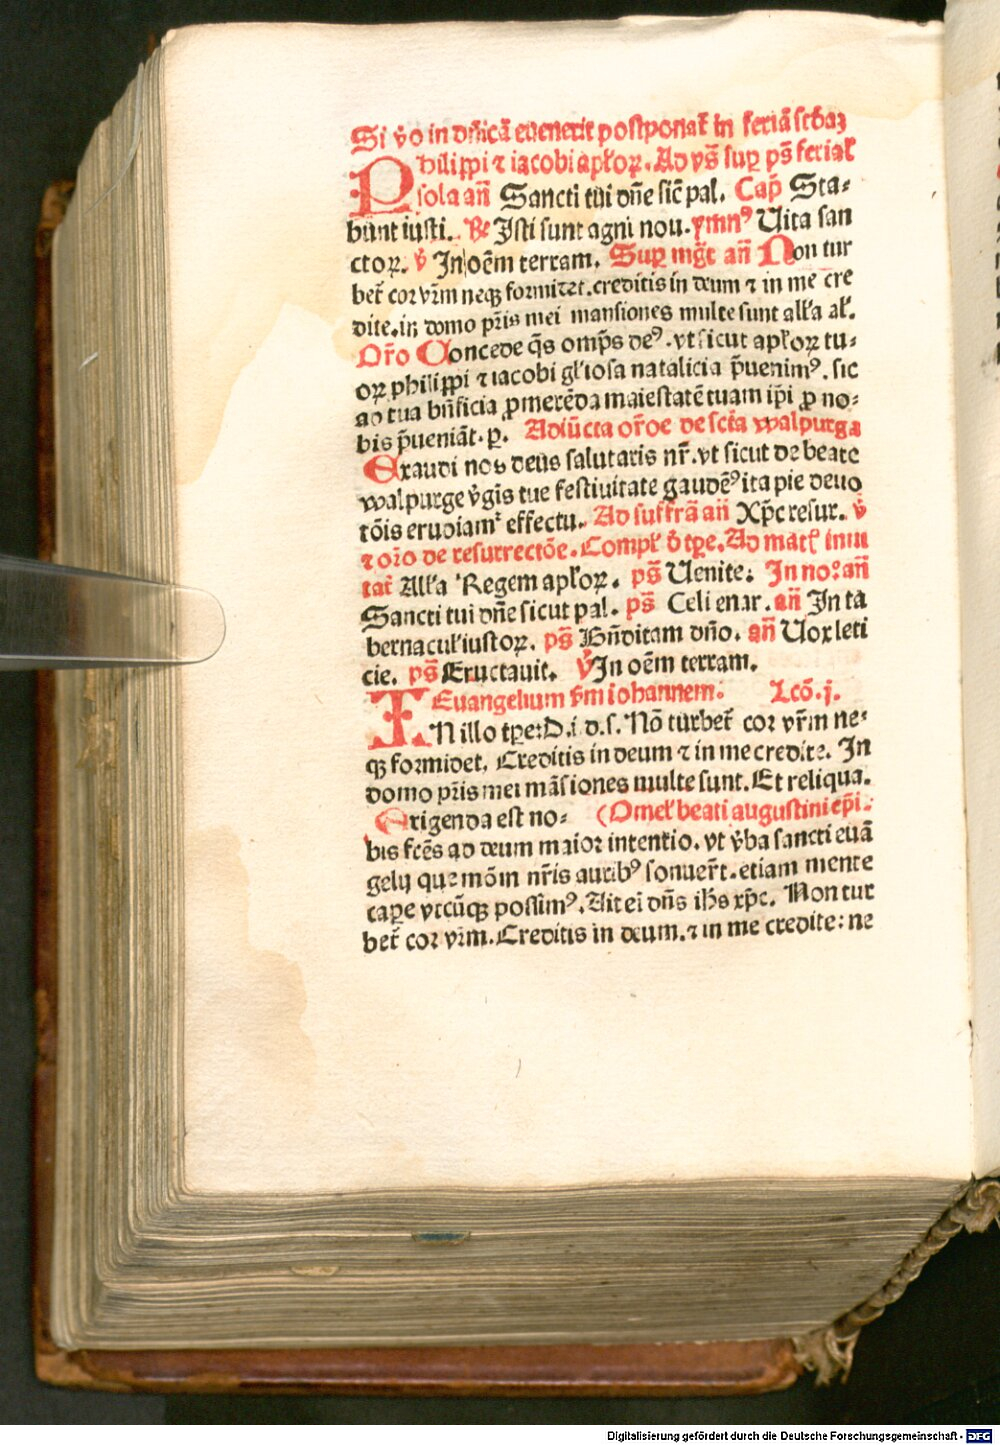 Si v̓o in dn̄icā euenerit postponat̄ in feriā scd̓aꝫ
Philippi ⁊ iacobi apl̓oꝝ. Ad vs̄ suꝑ ps̄ ferial̓
sola an̄ Sancti tui dn̄e sic̄ pal. Cap̄ Sta⸗
bunt iusti. ℟ Isti sunt agni nou. ymnꝰ Uita san
ctoꝝ. v̓ In oēm terram. Suꝑ mg̓t an̄ Non tur
bet̄ cor vr̄m neqꝫ formidet. creditis in deum ⁊ in me cre
dite. in domo pr̄is mei mansiones multe sunt all̓a al̓.
Or̄o Concede q̄s omp̄s deꝰ. vt sicut apl̓oꝝ tu⸗
oꝝ philippi ⁊ iacobi gl̓iosa natalicia p̄uenimꝰ. sic
ad tua bn̄ficia ꝓmerēda maiestatē tuam ip̄i ꝓ no⸗
bis p̄ueniāt. ꝑ. Adiūcta or̄oe de sct̄a walpurga
Exaudi nos deus salutaris nr̄. vt sicut de beate
walpurge v̓gīs tue festiuitate gaudēꝰ ita pie deuo
tōis erudiamᷣ effectu. Ad suffrā an̄ Xp̄c resur. v̓
⁊ or̄o de resurrectōe. Compl̓ d̓ tꝑe. Ad mat̓ inui
tat̄ All̓a Regem apl̓oꝝ. ps̄ Uenite: In no: an̄
Sancti tui dn̄e sicut pal. ps̄ Celi enar. an̄ In ta
bernacul̓ iustoꝝ. ps̄ Bn̄dicam dn̄o. an̄ Uox leti
cie. ps̄ Eructauit. v̓ In oēm terram.
Euangelium s̄m iohannem. Lcō. j.
IN illo tꝑe: D. i d. s. Nō turbet̄ cor vr̄m ne⸗
qꝫ formidet. Creditis in deum ⁊ in me credite. In
domo pr̄is mei māsiones multe sunt. Et reliqua.
Erigenda est no⸗ (Omel̓ beati augustini ep̄i.
bis fr̄es ad deum maior intentio. vt v̓ba sancti euā
gelij que mōm nr̄is auribꝰ sonuer̄t. etiam mente
capere vtcūqꝫ possimꝰ. Ait ei dn̄s ih̄s xp̄c. Non tur
bet̄ cor vr̄m. Creditis in deum. ⁊ in me credite: ne
Digitalisierung gefördert durch die Deutsche Forschungsgemeinschaft - DFG